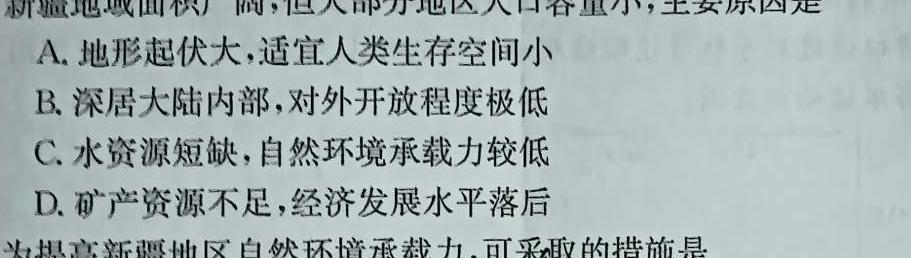 新疆地域面积广阔,但大部分地区人口容量小,主要原因是
A. 地形起伏大,适宜人类生存空间小
B. 深居大陆内部,对外开放程度极低
C. 水资源短缺,自然环境承载力较低
D. 矿产资源不足,经济发展水平落后
为提高新疆地区自然环境承载力,可采取的措施是